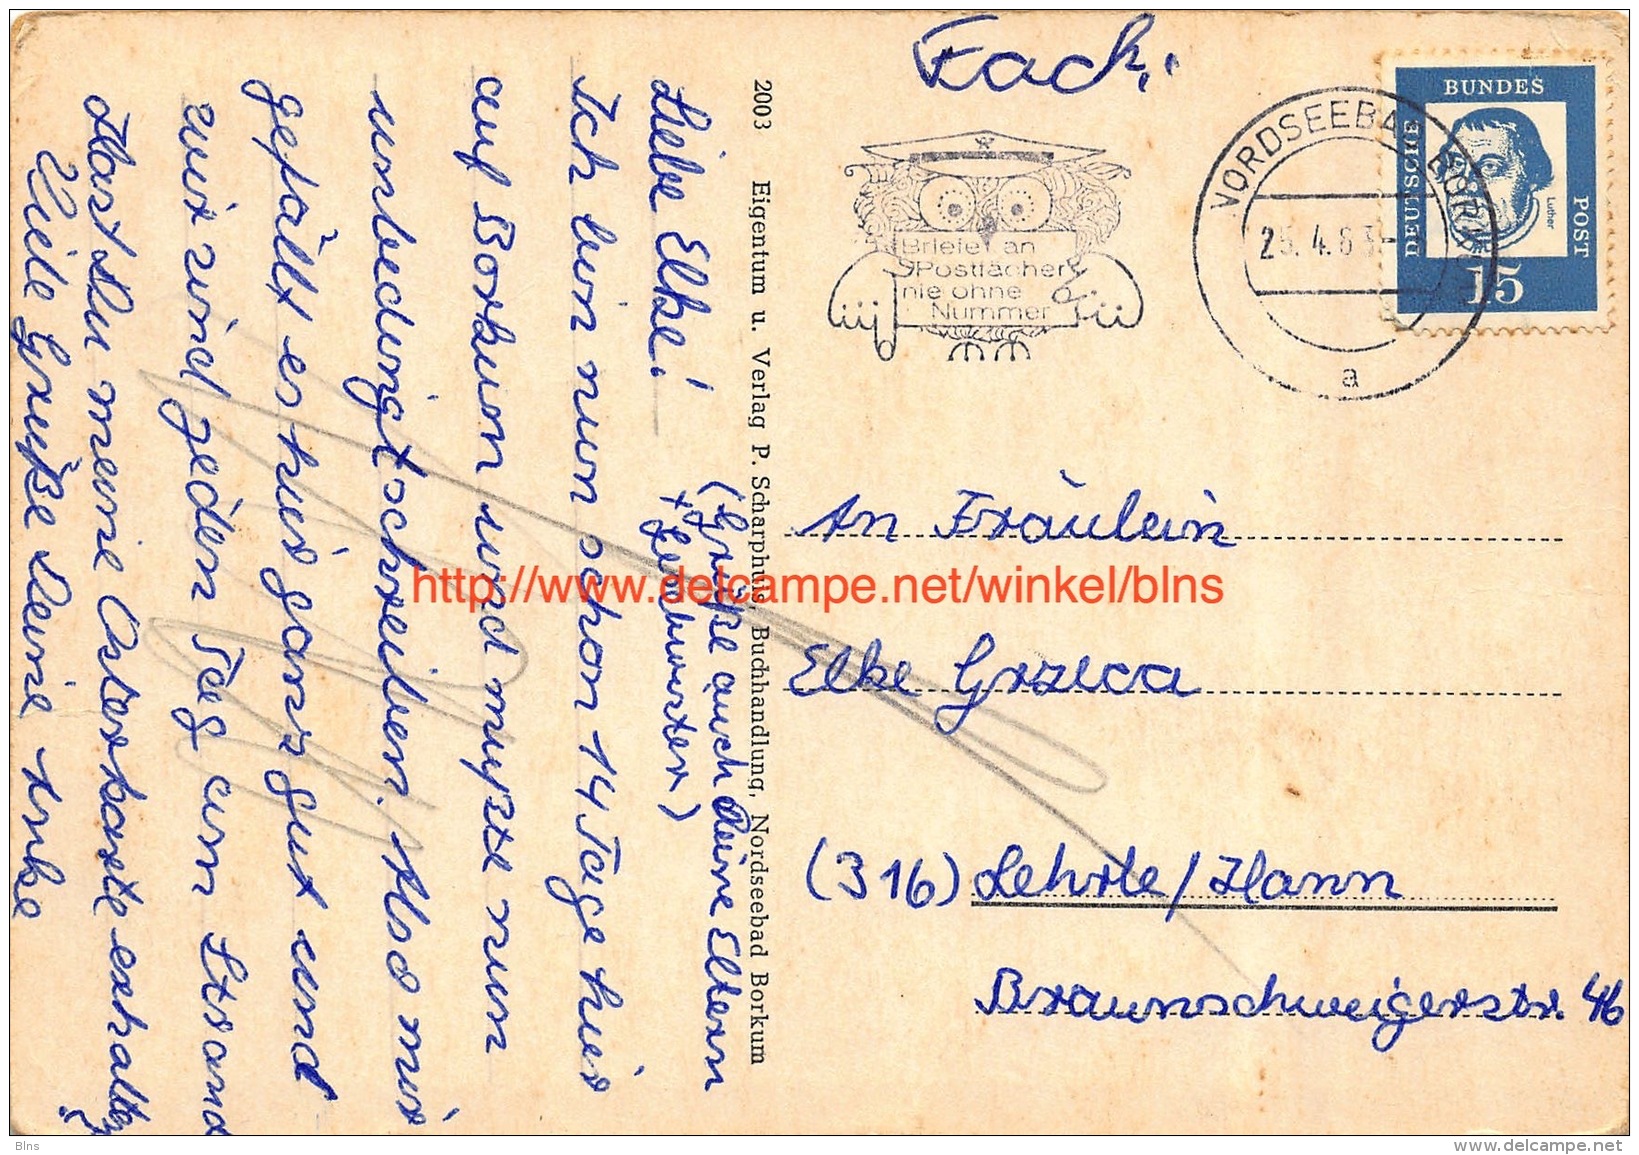 Liebe Elke!
Ich bin nun schon 14 Tage hier
auf Borkum und mußte nun
unbedingt schreiben. Also mir
gefällt es hier ganz gut und
wir sind jeden Tag am Strand
Hast Du meine Osterkarte erhalten?
Viele Grüße Deine Anke
(Grüße auch Deine Eltern
+ Geschwister)
2003 Eigentum u. Verlag P. Scharphuis, Buchhandlung, Nordseebad Borkum
Briefe an
Postfächer
nie ohne
Nummer
NORDSEEBAD BORKUM
25.4.63
a
DEUTSCHE BUNDES POST
Luther
15
An Fräulein
Elke Grzeca
(316) Lehrte/Hann
Braunschweigerstr. 46
http://www.delcampe.net/winkel/blns
Blns
www.delcampe.net